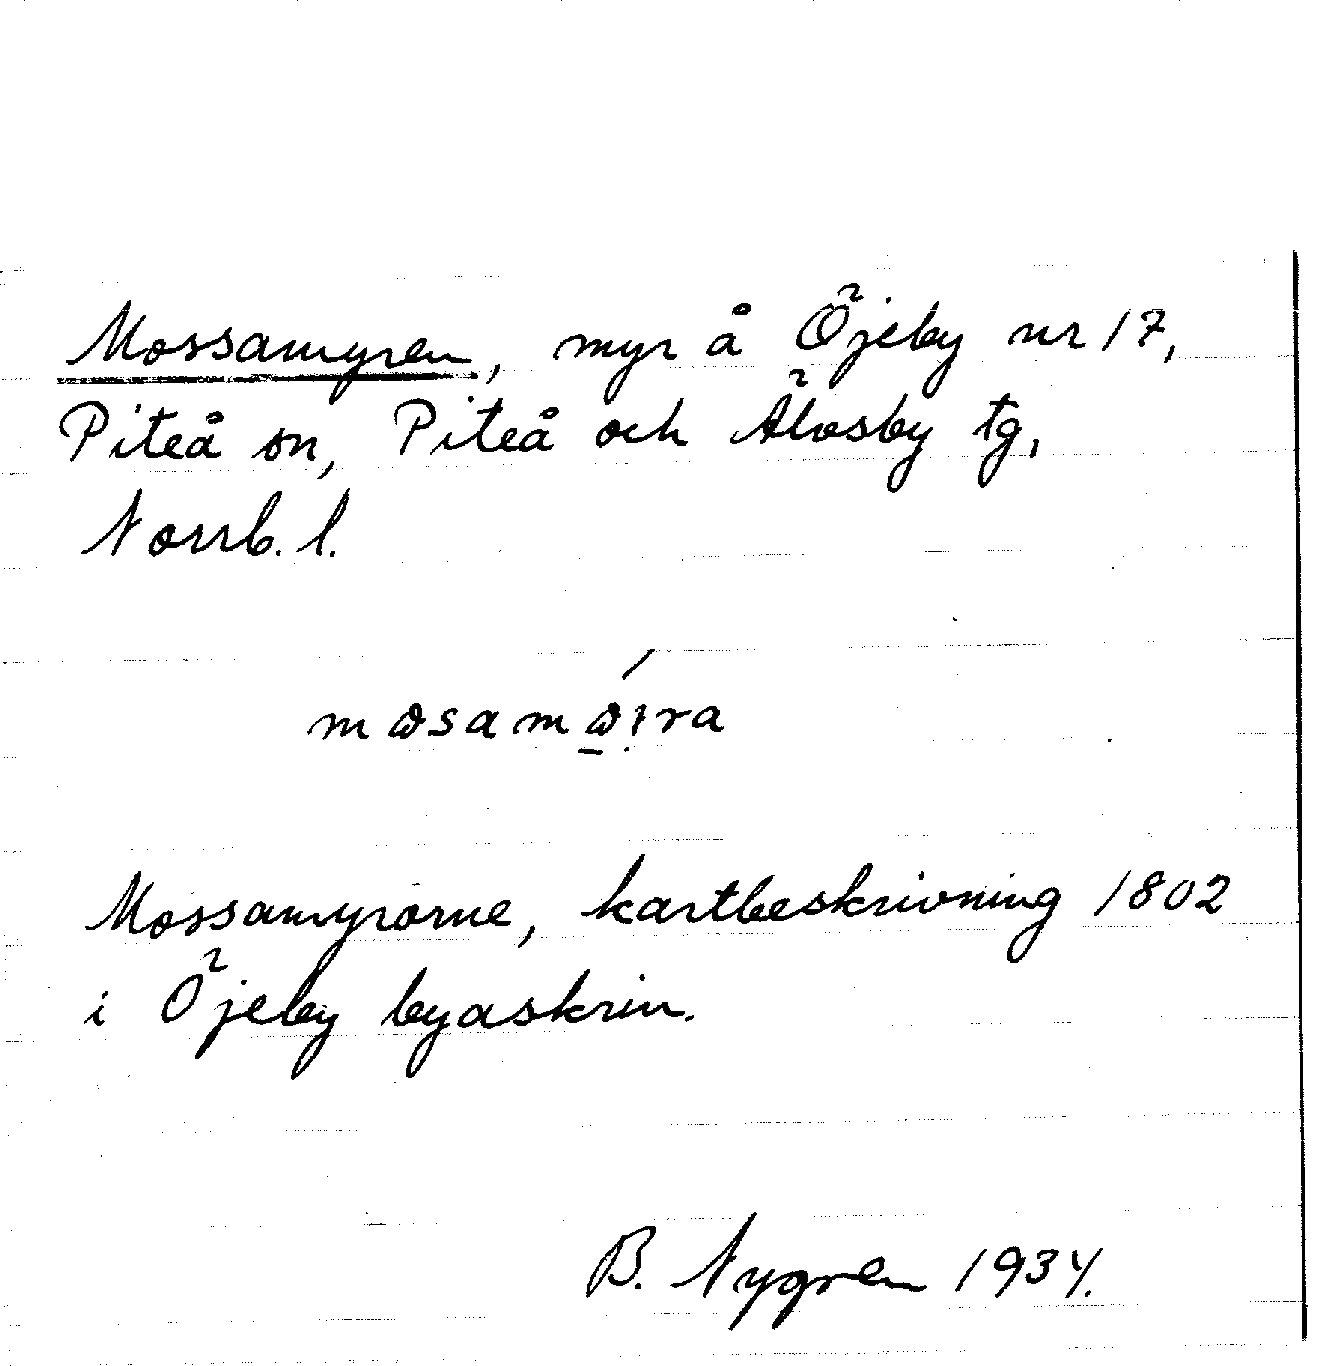 Mossamyren, myr å Öjeby nr 17,
Piteå sn, Piteå och Älvsby tg,
Norrb. l.
Mossamyrorne, kartbeskrivning 1802
i Öjeby byaskrin.
B. Nygren 1934.